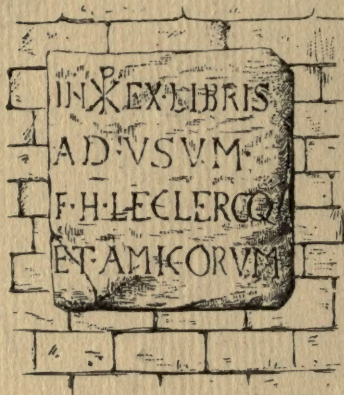 IN ☧ EX·LIBRIS
AD·VSVM·
F·H·LECLERCQ
ET·AMICORVM